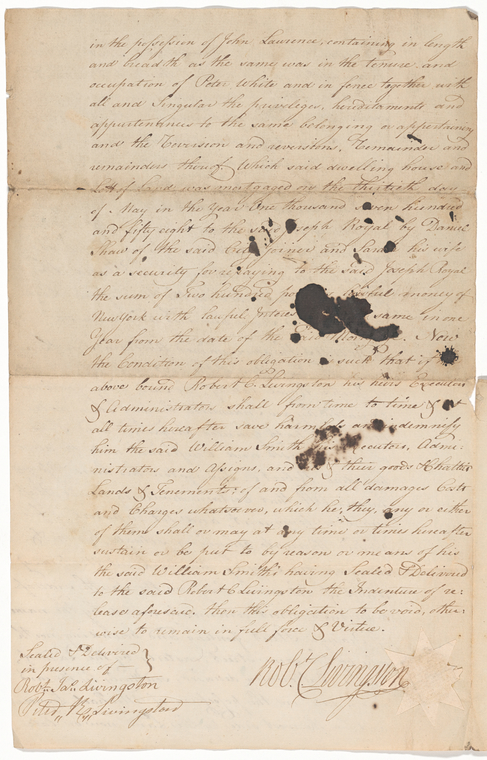 in the possession of John Lawrence, containing in length
and breadth as the same was in the tenure and
occupation of Peter White and in fence together with
all and Singular the priveleges, hereditaments and
appurtenances to the same belonging or appertaining
and the Reversion and reversions, Remainder and
remainders thereof Which said dwelling house and
Lot of Land was mortgaged on the thirtieth day
of May in the Year One thousand seven hundred
and fifty eight to the said Joseph Royal by Daniel
Shaw of the said City Joiner and Sarah his wife
as a security for repaying to the said Joseph Royal
the sum of Two hundred lawful money of
New York with lawful same in one
Year from the date of the Now
the Condition of this obligation is such that if
above bound Robert C Livingston his heirs Executors
& Administrators shall from time to time & at
all times hereafter save harmless and indemnify
him the said William Smith his Executors, Admi-
nistrators and Assigns, and & their goods & Chattles
Lands & Tenements of and from all damages Costs
and Charges whatsoever, which he, they, any or either
of them shall or may at any time or times hereafter
sustain or be put to by reason or means of his
the said William Smith's having Sealed & Delivered
to the said Robert C Livingston the Indenture of re-
lease aforesaid, then this obligation to be void, other-
wise to remain in full force & Virtue.
Sealed & Delivered
in presence of
Robt. Jas. Livingston
Livingston
Robt. C Livingston